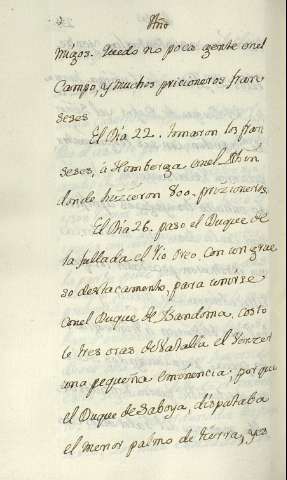 Año
Migos. Quedo no poca gente en el
Campo, y muchos pricioneros fran
seses
El Dia 22. tomaron los fran
seses, à Homberga en el Rhin
donde hizieron 800. prizioneros
El Dia 26. paso el Duque de
la fullada el Rio Oreo, Con con grue
so destacamento, para Unirse
con el Duque de Bandoma, costo
le tres oras de Vatalla el Venzer
una pequeña emonencia; por que
el Duque de Saboya, disputaba
el menor palmo de tierra, y es